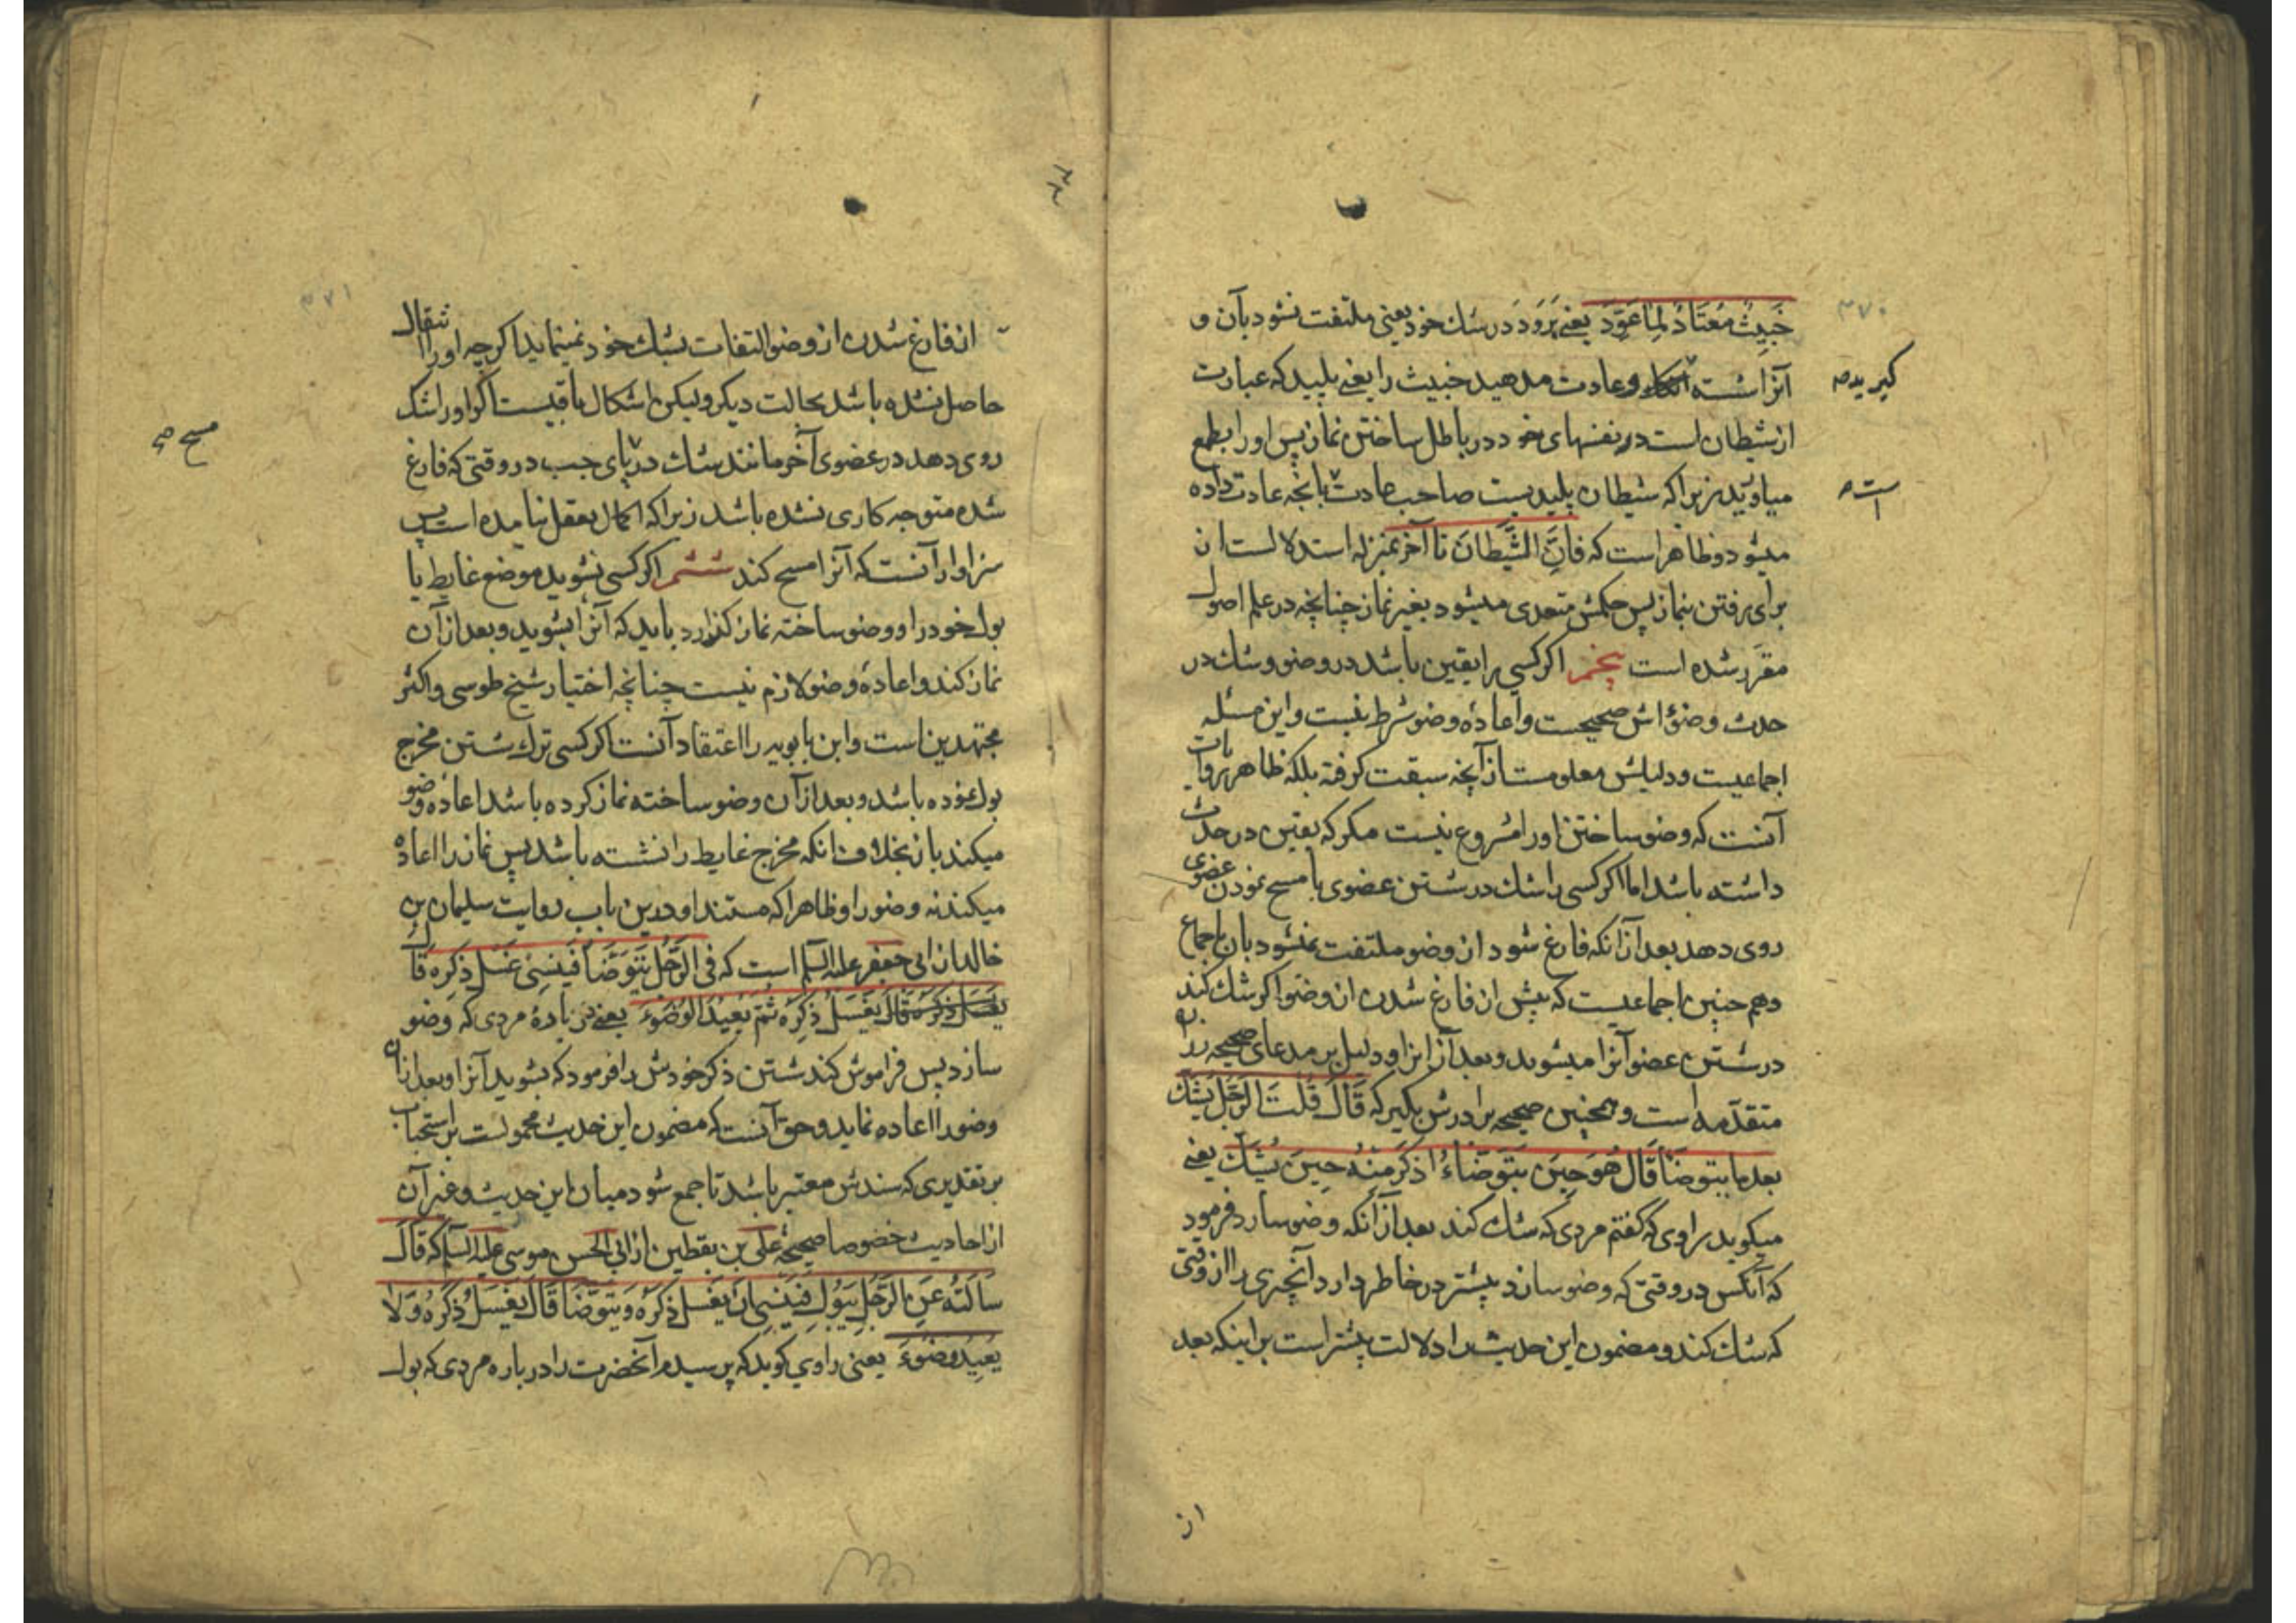 ۳۷۰
خَبِيثٌ مُعْتَادٌ لِمَا عُوِّدَ یعنی بَرَوَد در شك خود یعنی ملتفت نشود بآن و
آنرا شسته انکارد و عادت مدهید خبیث را یعنی پلید که عبارت
کیرید صح
از شیطان است در نفسهای خود در باطل ساختن نماز پس او را بطمع
میاورید زیرا که شیطان پلیدیست صاحب عادت بآنچه عادت داده
است ص
میشود و ظاهر است که فَاِنَّ الشَّيْطَانَ تا آخر بمنزله استدلالست ان
برای رفتن بنماز پس حکمش متعدی میشود بغیر نماز چنانچه در علم اصول
مقرّر شده است پنجم اکر کسی را یقین باشد در وضو و شك در
حدث وضوٴاش صحیحست و اعادهٔ وضو شرط نیست و این مسئله
اجماعیست و دلیلش معلومست از آنچه سبقت کرفته بلکه ظاهر روایات
آنست که وضو ساختن او را مشروع نیست مکر که یقین در حدث
داشته باشد اما اکر کسی را شك در شستن عضوی یا مسح نمودن عضوی
روی دهد بعد از آنکه فارغ شود از وضو ملتفت نمیشود بآن باجماع
و هم چنین اجماعیست که پیش از فارغ شدن از وضو اکر شك کند
در شستن عضو آنرا میشوید و بعد آنرا و دلیل بر مدعای صحیحه زراره
متقدّمه است و همچنین صحیحه برادرش بکیر که قَالَ قُلْتُ الرَّجُلُ يَشُكُّ
بعد ما یتوضّأ قَالَ هُوَ حِينَ يَتَوَضَّاءُ اَذْكَرُ مِنْهُ حِينَ يَشُكُّ یعنی
میکوید راوی که کفتم مردی که شك کند بعد از آنکه وضو سازد فرمود
که آنکس در وقتی که وضو سازد بیشتر در خاطر دارد آنچیزی را از وقتی
که شك کند و مضمون این حدیث را دلالت بیشتر است بر اینکه بعد
از
۳۷۱
از فارغ شدن از وضو التفات بشك خود نمینماید اکرچه او را انتقال
حاصل نشده باشد بحالت دیکر ولیکن اشکال باقیست اکر او را شك
روی دهد در عضوی آخر مانند شك در پای چپ در وقتی که فارغ
مسح ص
شده متوجه کاری نشده باشد زیرا که اکمال بفعل نیامده است پس
سزاوار آنست که آنرا مسح کند ششم اکر کسی نشوید موضع غایط یا
بول خود را و وضو ساخته نماز کذارد باید که آنرا بشوید و بعد از آن
نماز کند و اعادهٔ وضو لازم نیست چنانچه اختیار شیخ طوسی و اکثر
مجتهدین است و ابن بابویه را اعتقاد آنست اکر کسی ترك شستن مخرج
بول نموده باشد و بعد از آن وضو ساخته نماز کرده باشد اعادهٔ وضو
میکند با نماز بخلاف آنکه مخرج غایط را نشسته باشد پس نماز را اعاده
میکند نه وضو را و ظاهرا که مستند او درین باب روایت سلیمان بن
خالد از ابی جعفر علیه السلم است که فِی الرَّجُلِ يَتَوَضَّأُ فَيَنْسِى غَسْلَ ذَكَرِهِ قَالَ
يَغْسِلُ ذَكَرَهُ ثُمَّ يُعِيدُ الْوُضُوءَ یعنی در بارهٔ مردی که وضو
سازد پس فراموش کند شستن ذکر خودش را فرمود که بشوید آنرا و بعد از آن
وضو را اعاده نماید و حق آنست که مضمون این حدیث محمولست بر استحباب
بر تقدیری که سندش معتبر باشد تا جمع شود میان این حدیث و غیر آن
از احادیث خصوصا صحیحهٔ علی بن یقطین از ابی الحسن موسی علیه السلم که قَالَ
سَاَلْتُهُ عَنِ الرَّجُلِ يَبُولُ فَيَنْسِى اَنْ يَغْسِلَ ذَكَرَهُ وَيَتَوَضَّأُ قَالَ يَغْسِلُ ذَكَرَهُ وَلَا
يُعِيدُ وُضُوءَ یعنی راوی کوید که پرسیدم آنحضرت را درباره مردی که بول